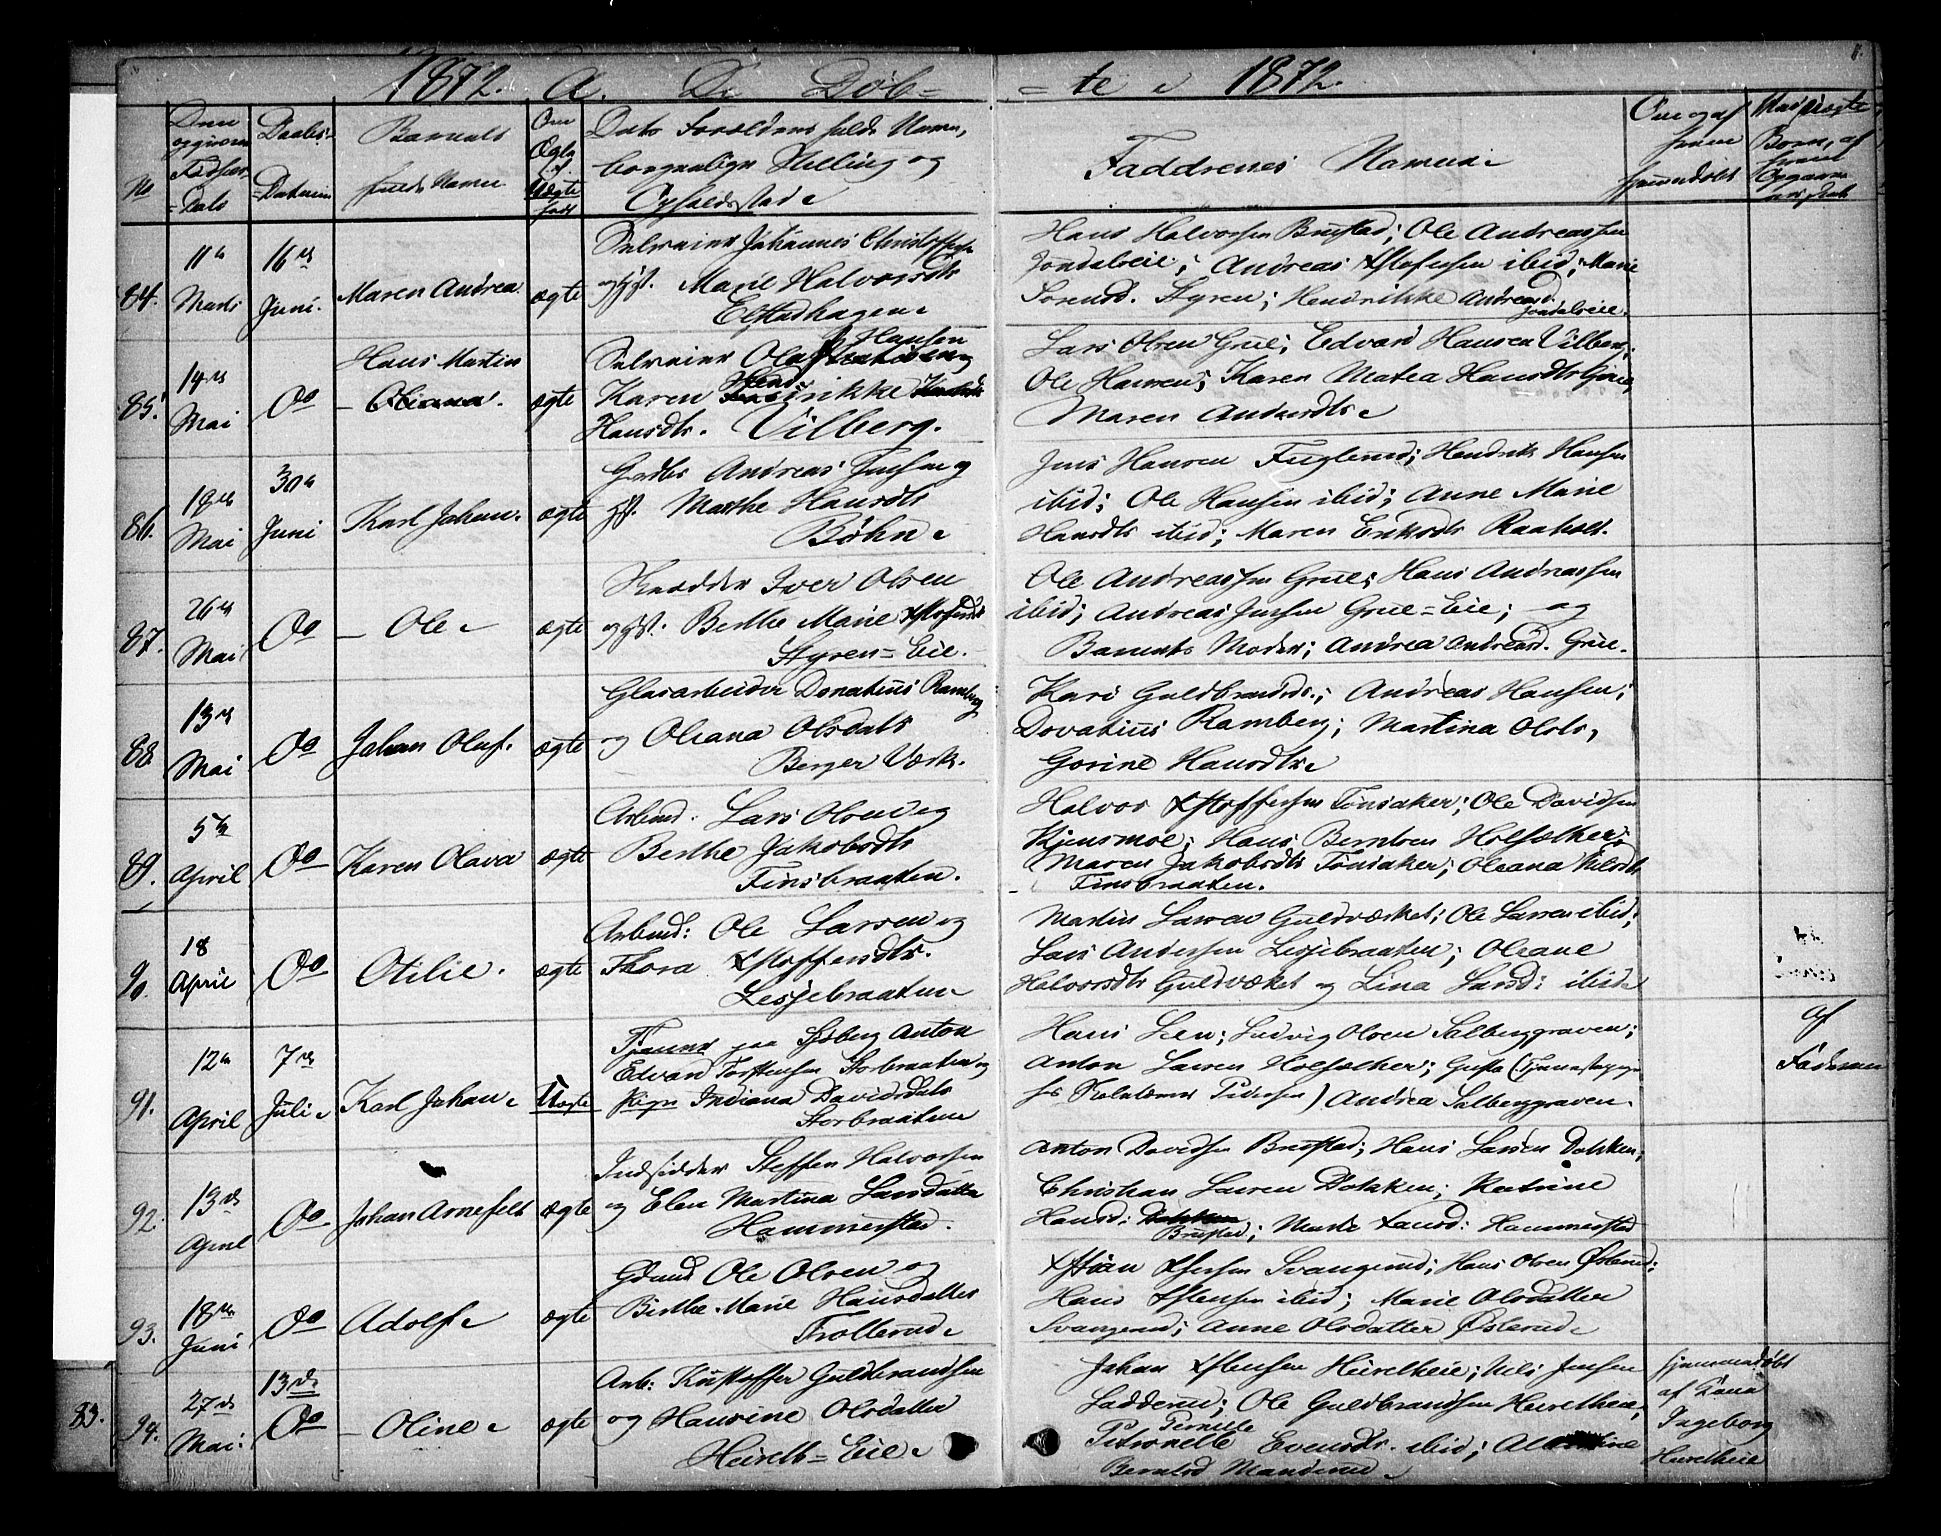 1872. A. De Døb- -te 1872.
No
Dato
Daabs-
Datum
Barnets
fulde Navne
Om
Ægte
Uægte
født
Dato Forældres fulde Navne,
borgerlige Stilling og
Opholdssted
Faddrenes Navne
Om og af
hvem
hjemmedøbt
Ved Uægte
Børn, af
hvem
84.
11te
Marts
16de
Juni.
Maren Andrea
ægte
Selveier Johannes Christoffersen
og Hst. Marie Halvorsdtr
Elstadhagen
Hans Halvorsen Brustad; Ole Andreassen
Jondalseie; Andreas Xstofersen ibid; Marie
Sorensd. Styren; Hendrikke Andreasd.
Jondalseie.
85.
14de
Mai
Do
Hans Martin
Oliana.
ægte
Selveier Ola Hansen og
Karen Hendrikke
Hansdtr. Vilberg.
Lars Olsen Grue; Edvard Hansen Vilberg;
Ole Hansen; Karen Matea Hansdtr Grue,
Maren Andersdtr
86.
19de
Mai
30te
Juni
Karl Johan
ægte
Grdbr Andreas Jensen og
Hst. Marthe Hansdtr
Bøhn
Jens Hansen Fuglerud; Hendrik Hansen
ibid; Ole Hansen ibid; Anne Marie
Hansdtr ibid; Maren Eriksdtr Raaholt.
87.
26de
Mai
Do
Ole
ægte
Skrædder Iver Olsen
og Hst. Berthe Marie Xstofersdtr
Styren-Eie.
Ole Andreassen Grue; Hans Andreassen
ibid; Andreas Jensen Grue-Eie; og
Barnets Moder; Andrea Andreasd. Grue.
88.
13de
Mai
Do
Johan Oluf.
ægte
Glasarbeider Donatius Ramberg
og Oleana Olsdatr
Berger Værk.
Kari Guldbrandsd.; Andreas Hansen;
Dovatius Ramberg; Martina Olsdtr,
Gorine Hansdtr
89.
5te
April
Do
Karen Olava
ægte
Arbmd. Lars Olsen og
Berthe Jakobsdtr
Finsbraaten.
Halvor Xstoffersen Tønsaker; Ole Davidsen
Kjensmoe; Hans Berntsen Holsæther;
Maren Jakobsdtr Tønsaker; Oleana Nilsdtr
Finsbraaten.
90.
18
April
Do
Otilie.
ægte
Arbmd: Ole Larsen og
Thora Xstoffersdtr.
Lesjebraaten
Martin Larsen Guldværket; Ole Larsen ibid;
Lars Andersen Lesjebraaten; Oleane
Halvorsdtr Guldværket og Lina Larsd: ibid
91.
12te
April
7de
Juli
Karl Johan
Uægte
Anton
Edvard Torstensen Korbraaten og
Pigen Indiana Davidsdatr
Korbraaten
Hans Lien; Ludvig Olsen Salberggraven;
Anton Larsen Holsæther;
Andrea Salberggraven.
Af
Faderen
92.
13de
April
Do
Johan Arnefelt
ægte
Indsidder Steffen Halvorsen
og Elen Martina Larsdatter
Hammerstad.
Anton Davidsen Brustad; Hans Larsen Dokken;
Christian Larsen Dokken; Katrine
Hansd: Dokken
Brustad; Marte Larsd: Hammerstad
93.
18de
Juni
Do
Adolf
ægte
Grdmd Ole Olsen og
Birthe Marie Hansdatter
Trollerud
Svangerud; Hans Olsen Østerud;
Hans Xstensen ibid; Marie Olsdatter
Svangerud; Anne Olsdatter Østerud
94.
27de
Mai:
13de
Do
Oline
ægte
Arb: Kristoffer Guldbrandsen
og Hansine Olsdatter
Hureth-Eie
Johan Xstensen Huretheie; Nils Jensen
Ladderud; Ole Guldbrandsen Huretheie;
Pernille
Petronelle Evensdtr. ibid;
Berntsd Manderud
hjemmedøbt
af Kona
Ingeborg
Huretheie
83.